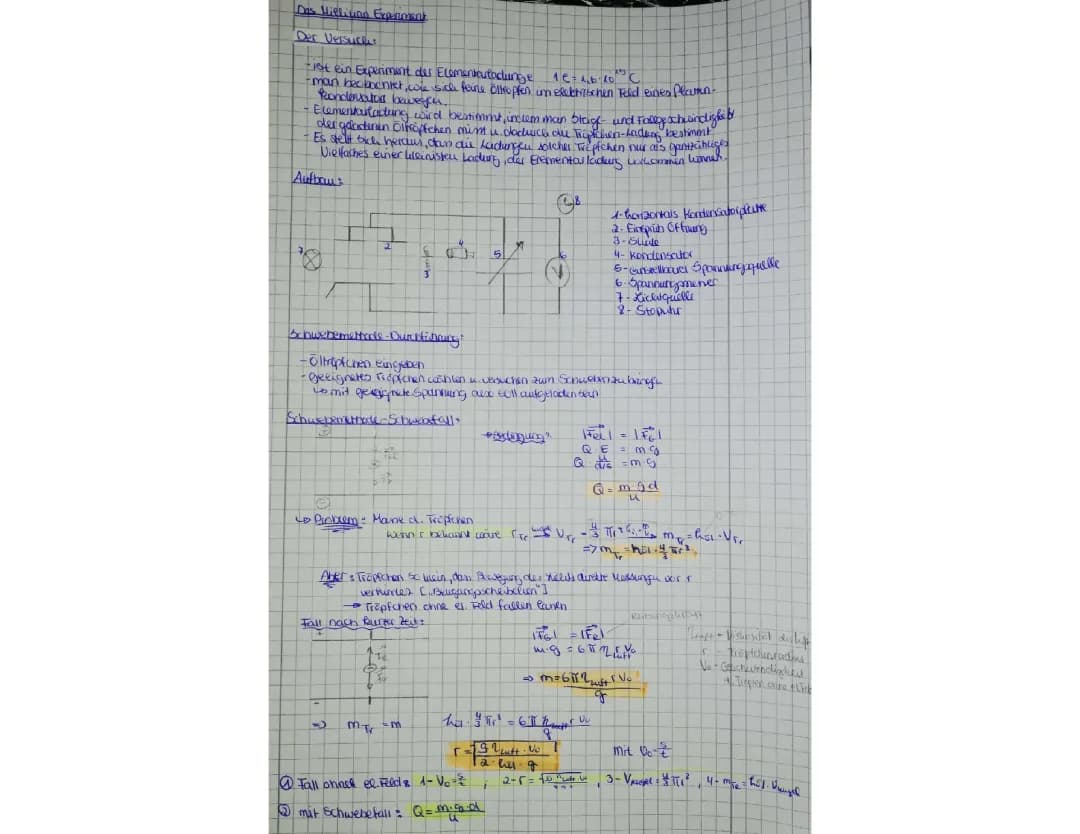 Das Millikan Experiment
Der Versuch:
- ist ein Experiment des Elementarladunge 1e = 1,6 · 10⁻¹⁹ C
- man beobachtet, wie sich feine Öltropfen im elektrischen Feld eines Platten-
kondensators bewegen.
- Elementarladung wird bestimmt, indem man Steig- und Fallgeschwindigkeit
der geladenen Öltröpfchen misst u. dadurch die Tröpfchen-Ladung bestimmt
- Es stellt sich heraus, dass die Ladungen solcher Tröpfchen nur als ganzzahliges
Vielfaches einer kleinsten Ladung, der Elementarladung vorkommen können.
Aufbau:
8
7
2
3
4
5
6
V
1- horizontale Kondensatorplatte
2- Einsprüh Öffnung
3- Skala
4- Kondensator
5- einstellbare Spannungsquelle
6- Spannungsmesser
7- Lichtquelle
8- Stopuhr
Schwebemethode-Durchführung:
- Öltröpfchen eingeben
- geeignetes Tröpfchen wählen u. versuchen zum Schweben zu bringen
↳ mit geeignete Spannung
Schwebemethode-Schwebefall:
→ Bedingung:
|Fel| = |FG|
Q · E = m · g
Q · U/d = m · g
Q = m·g·d/U
↳ Problem: Masse d. Tröpfchen
wenn r bekannt wäre
V_Tr = 4/3 π r³
=> m_Tr =
Aber: Tröpfchen so klein, dass Beugung des Lichts direkte Messungen von r
verhindert ["Beugungsscheibchen"]
→ Tröpfchen ohne el. Feld fallen lassen
Fall nach kurzer Zeit:
|FG| = |FR|
m·g = 6 π η_Luft r v₀
=> m = 6 π η_Luft r v₀/g
η_Luft - Viskosität der Luft
r - Tröpfchenradius
v₀ - Geschwindigkeit
=> m_Tr = m
4/3 π r³ = 6 π η_Luft r v₀/g
mit v₀ = s/t
① Fall ohne el. Feld: 1- v₀ = s/t , 2- r = , 3- V_Kugel = 4/3 π r³ , 4- m_Tr =
② mit Schwebefall: Q = m·g·d/U